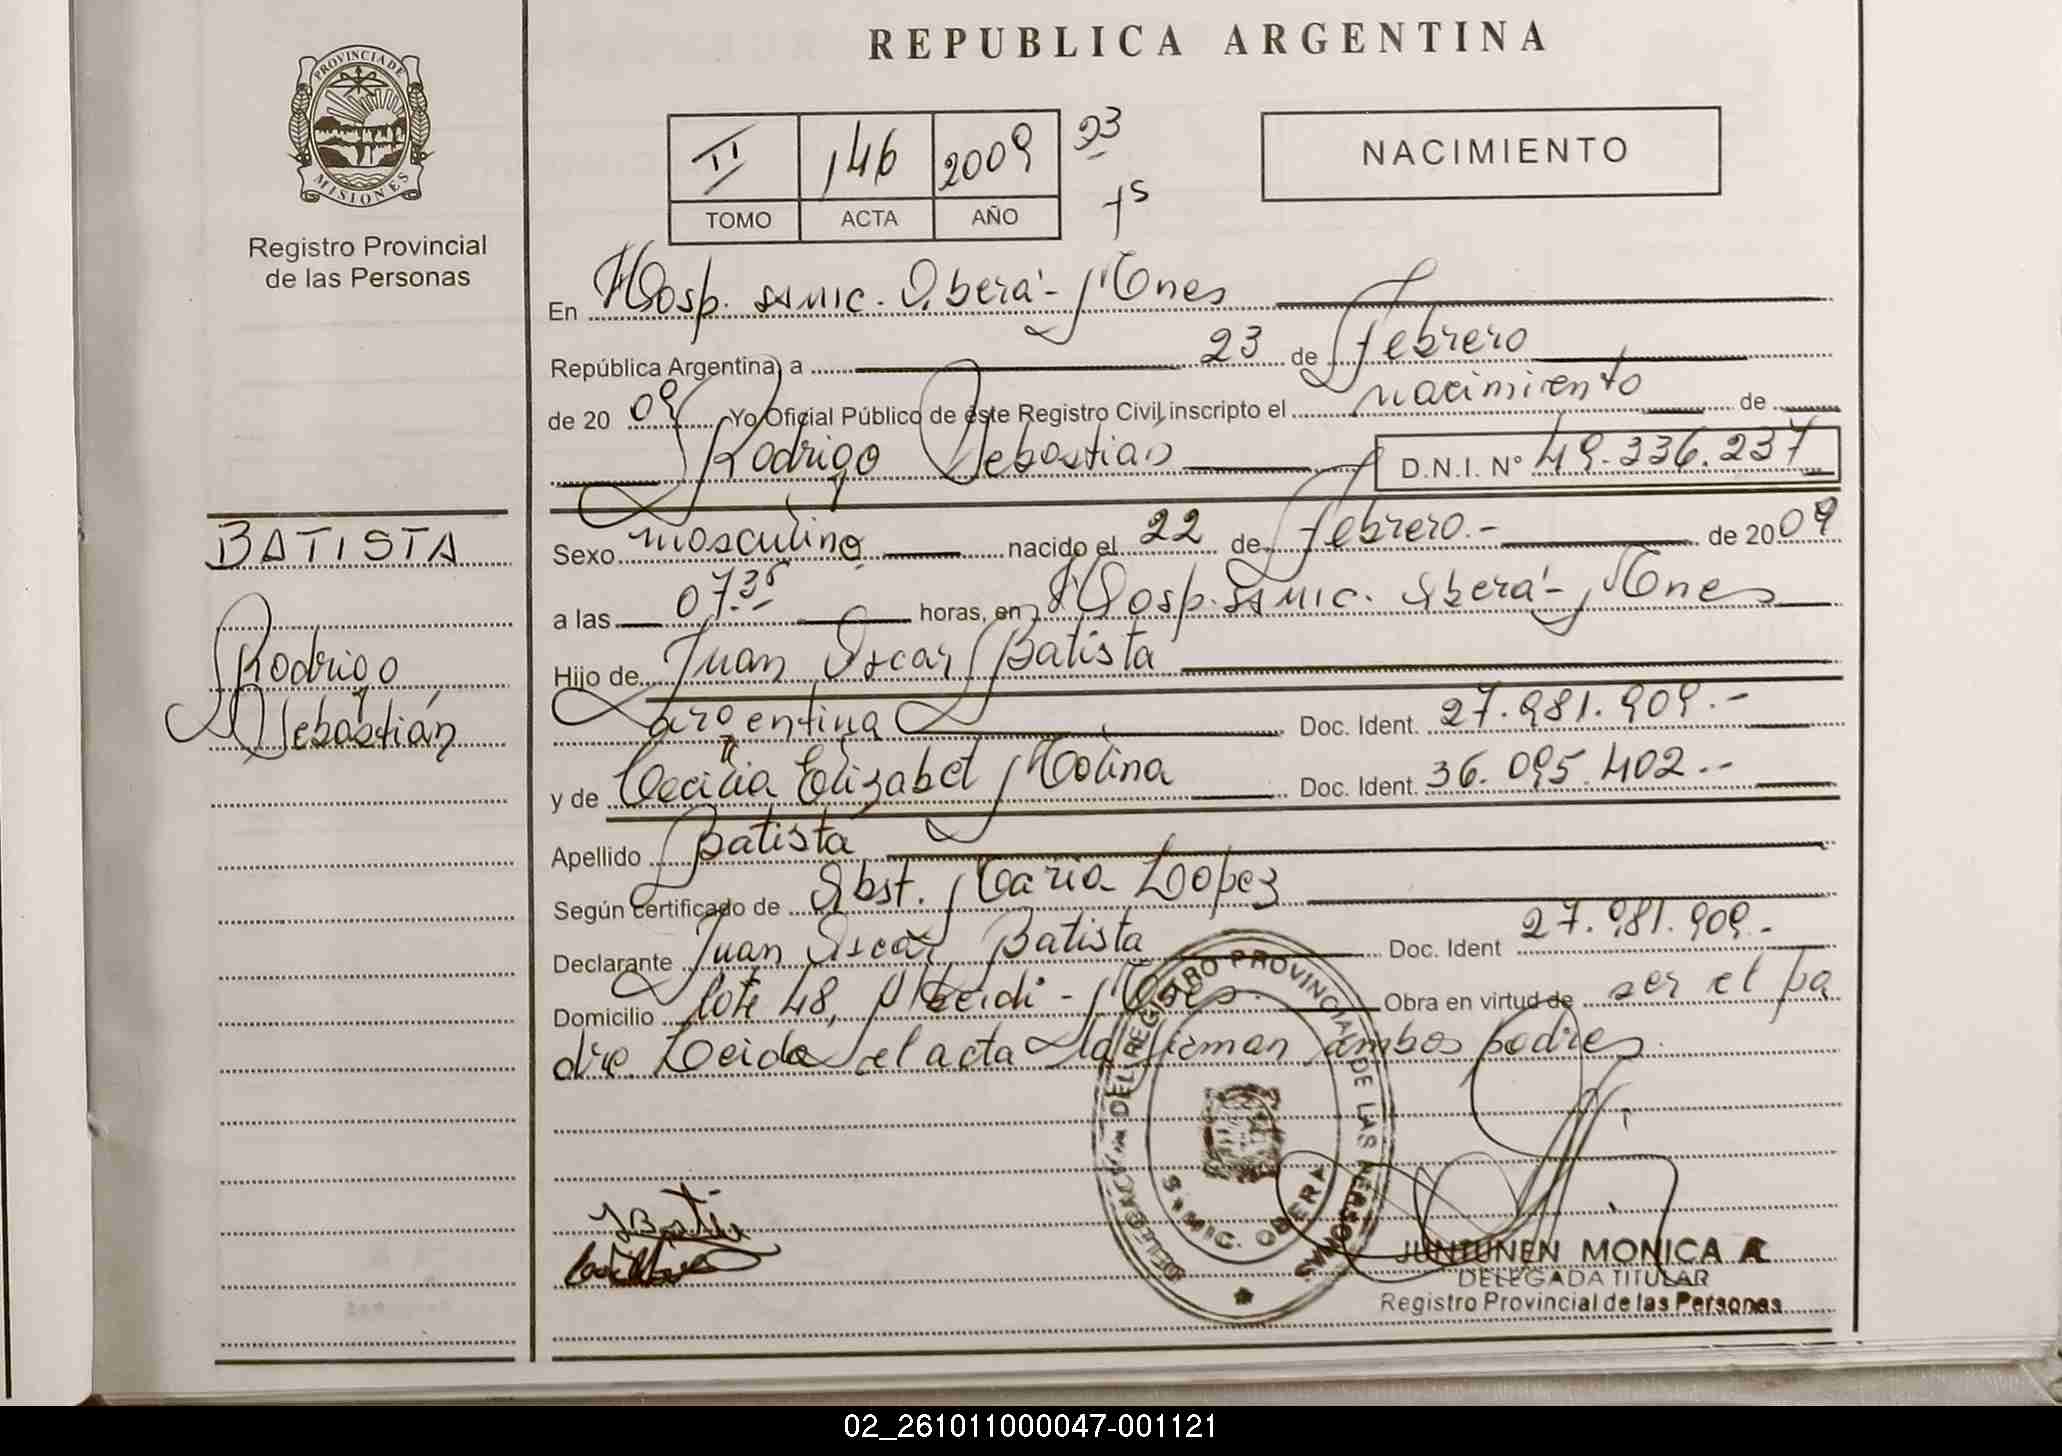 REPUBLICA ARGENTINA
PROVINCIA DE
MISIONES
Registro Provincial
de las Personas
II 146 2009 23
TOMO ACTA AÑO
NACIMIENTO
En Hosp. SAMIC. Oberá - Mnes
República Argentina, a 23 de febrero
de 2009 Yo Oficial Público de este Registro Civil, inscripto el nacimiento de
Rodrigo Sebastián D.N.I. Nº 49.336.237
BATISTA
Rodrigo
Sebastián
Sexo masculino nacido el 22 de febrero.- de 2009
a las 07.35 horas, en Hosp. SAMIC. Oberá - Mnes
Hijo de Juan Oscar Batista
argentina Doc. Ident. 27.981.909.-
y de Cecilia Elizabet Molina Doc. Ident. 36.095.402.-
Apellido Batista
Según certificado de Obst. María Lopez
Declarante Juan Oscar Batista Doc. Ident 27.981.909.-
Domicilio lote 48, Obra en virtud de ser el pa
dre. Leida el acta la firman ambos padres.
DELEGACIÓN DEL REGISTRO PROVINCIAL DE LAS PERSONAS
SAMIC. OBERA
JUNTUNEN MONICA A
DELEGADA TITULAR
Registro Provincial de las Personas
02_261011000047-001121